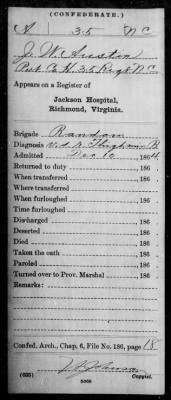 (CONFEDERATE.)
A 35 N C
J. W. Austin
Pvt Co H. 35 Regt N C
Appears on a Register of
Jackson Hospital,
Richmond, Virginia.
Brigade Ransom
Diagnosis
Admitted Dec 10, 186
Returned to duty , 186
When transferred , 186
Where transferred
When furloughed , 186
Time furloughed
Discharged , 186
Deserted , 186
Died , 186
Took the oath , 186
Paroled , 186
Turned over to Prov. Marshal , 186
Remarks:
Confed. Arch., Chap. 6, File No. 186, page 18
(635) Copyist.